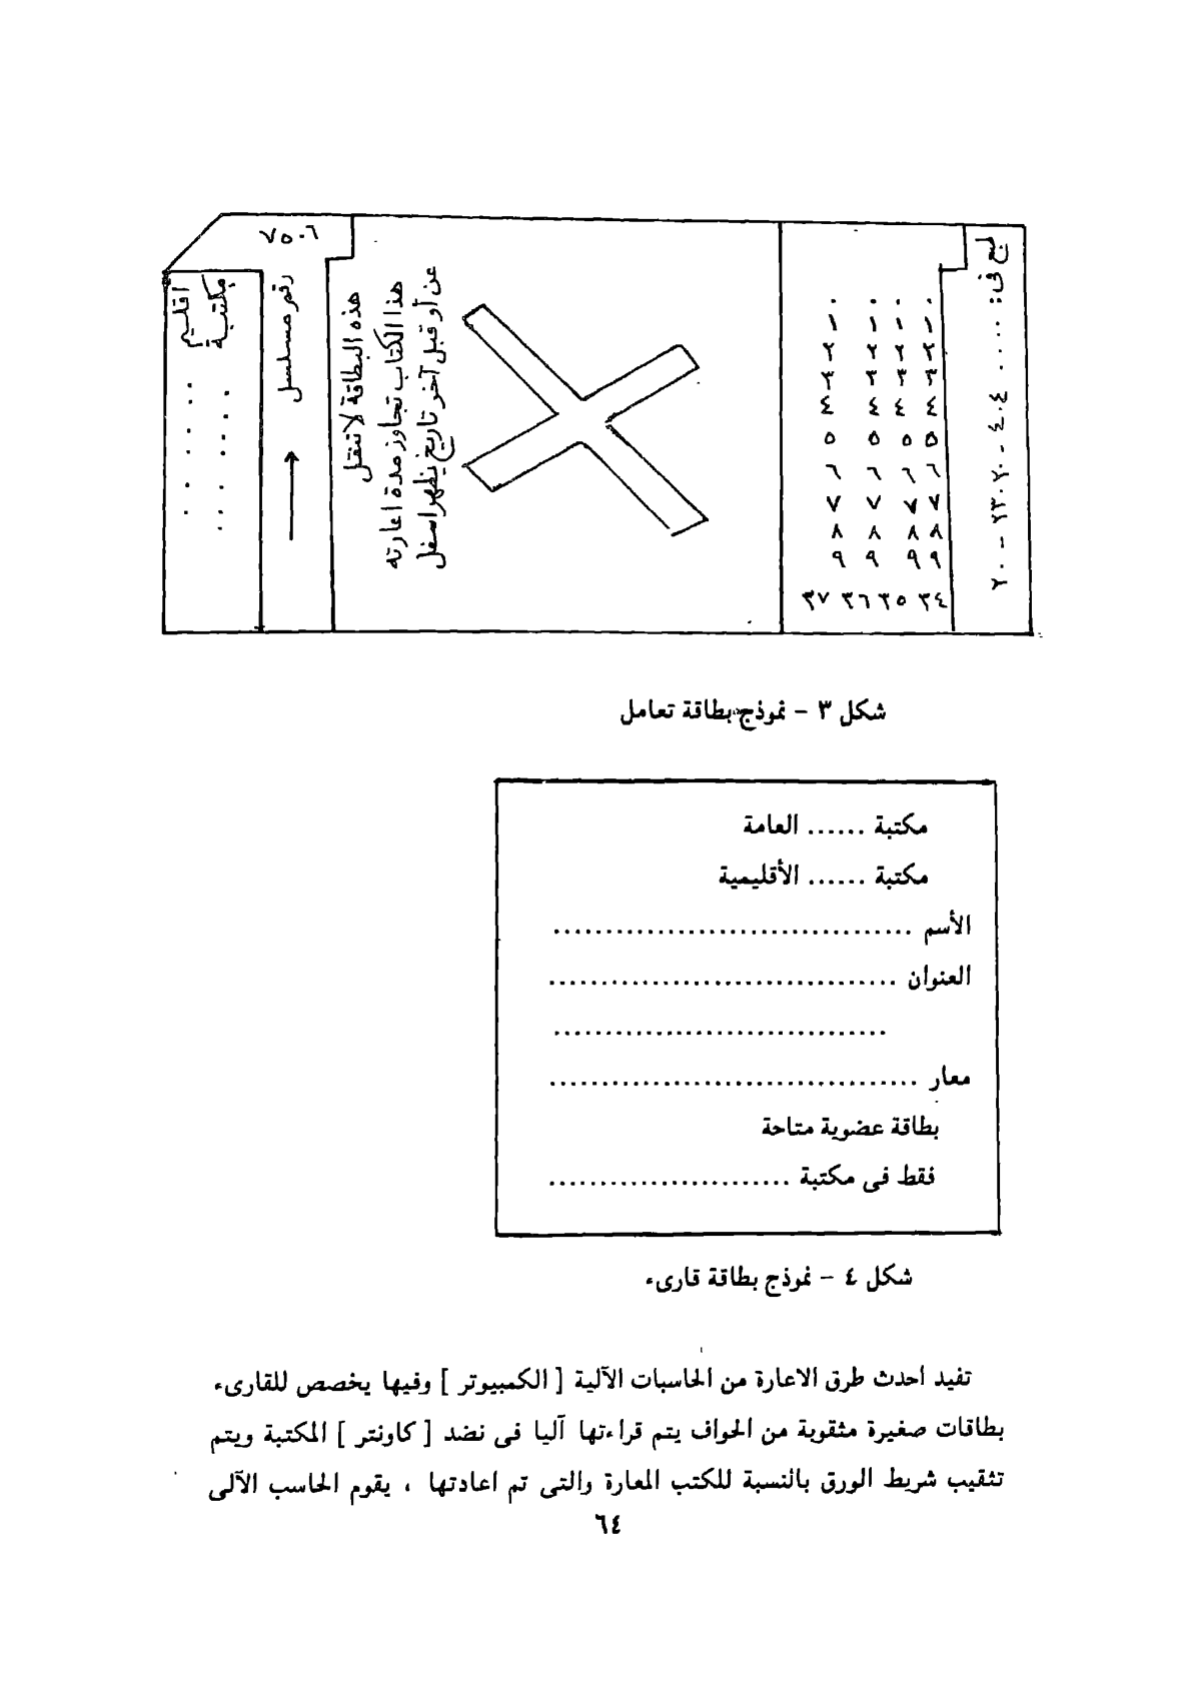 ٧٥٠٦
اقليم ......
مكتبة ......
رقم مسلسل
هذه البطاقة لا تنقل
هذا الكتاب تجاوز مدة اعارته
عن أو قبل آخر تاريخ يظهر اسفل
٠ ٠ ٠ ٠
١ ١ ١ ١
٢ ٢ ٢ ٢
٣ ٣ ٣ ٣
٤ ٤ ٤ ٤
٥ ٥ ٥ ٥
٦ ٦ ٦ ٦
٧ ٧ ٧ ٧
٨ ٨ ٨ ٨
٩ ٩ ٩ ٩
٣٧ ٣٦ ٣٥ ٣٤
طبع فى : ....
شكل ٣ – نموذج بطاقة تعامل
مكتبة ...... العامة
مكتبة ...... الأقليمية
الأسم ...................................
العنوان ..................................
.................................
معار ....................................
بطاقة عضوية متاحة
فقط فى مكتبة ........................
شكل ٤ – نموذج بطاقة قارىء
تفيد احدث طرق الاعارة من الحاسبات الآلية [ الكمبيوتر ] وفيها يخصص للقارىء
بطاقات صغيرة مثقوبة من الحواف يتم قراءتها آليا فى نضد [ كاونتر ] المكتبة ويتم
تثقيب شريط الورق بالنسبة للكتب المعارة والتى تم اعادتها ، يقوم الحاسب الآلى
٦٤